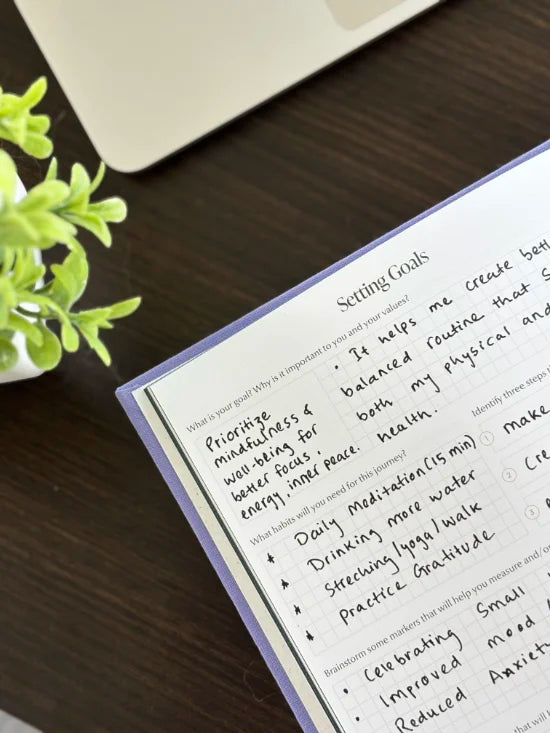 Setting Goals
What is your goal? Why is it important to you and your values?
Prioritize
mindfulness &
well-being for
better focus,
energy, inner peace.
• It helps me create
balanced routine that
both my physical and
health.
What habits will you need for this journey?
Daily Meditation (15 min)
Drinking more water
Streching/yoga/walk
Practice Gratitude
Identify three steps
1 make
2
3
Brainstorm some markers that will help you measure and/
• Celebrating Small
• Improved mood
Reduced Anxiety
that will